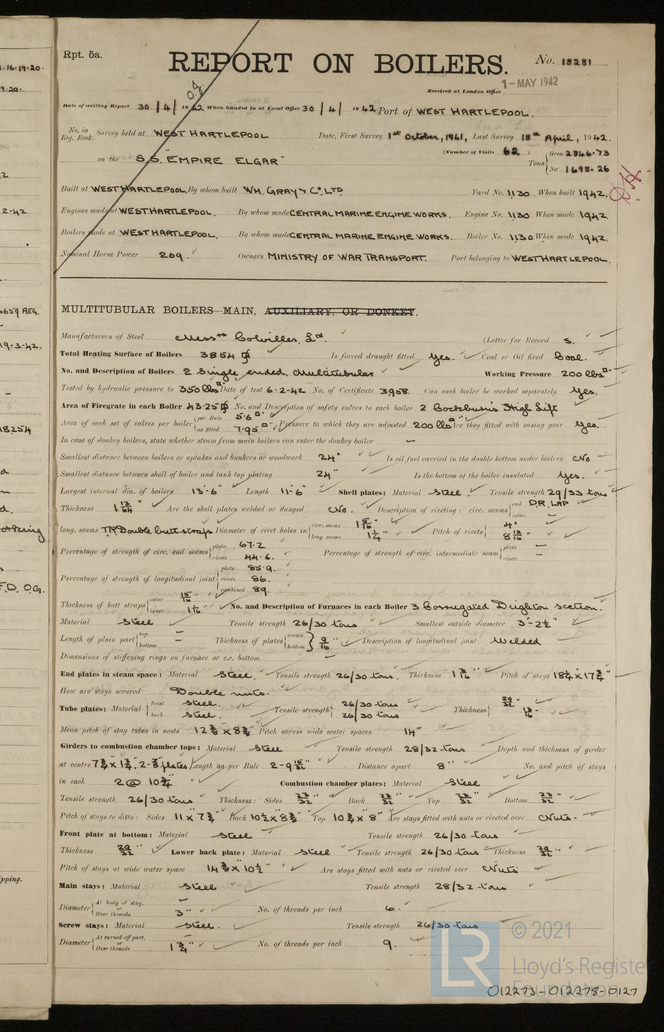 Rpt. 5a.
REPORT ON BOILERS.
No. 18281
1 - MAY 1942
Received at London Office
Date of writing Report 30/4/1942 When handed in at Local Office 30/4/1942 Port of WEST HARTLEPOOL.
No. in Reg. Book. Survey held at WEST HARTLEPOOL Date, First Survey 1st October, 1941, Last Survey 18th April, 1942.
(Number of Visits 62)
on the S.S. "EMPIRE ELGAR" Tons { Gross 2846.73
Net 1698.26
Built at WEST HARTLEPOOL By whom built WM. GRAY & CO. LTD Yard No. 1130 When built 1942.
Engines made at WEST HARTLEPOOL. By whom made CENTRAL MARINE ENGINE WORKS. Engine No. 1130 When made 1942
Boilers made at WEST HARTLEPOOL. By whom made CENTRAL MARINE ENGINE WORKS. Boiler No. 1130 When made 1942.
Nominal Horse Power 269. Owners MINISTRY OF WAR TRANSPORT. Port belonging to WEST HARTLEPOOL.
MULTITUBULAR BOILERS—MAIN, AUXILIARY, OR DONKEY.
Manufacturers of Steel Messrs Colvilles, Ltd. (Letter for Record S.
Total Heating Surface of Boilers 3854 Is forced draught fitted Yes. Coal or Oil fired Coal.
No. and Description of Boilers 2 Single ended, Multitubular Working Pressure 200 lbs
Tested by hydraulic pressure to 350 lbs Date of test 6-2-42 No. of Certificate 3908. Can each boiler be worked separately Yes.
Area of Firegrate in each Boiler 43.25 No. and Description of safety valves to each boiler 2 Cockburn's High Lift
Area of each set of valves per boiler { per Rule 5.6
as fitted 7.95 Pressure to which they are adjusted 200 lbs Are they fitted with easing gear Yes.
In case of donkey boilers, state whether steam from main boilers can enter the donkey boiler —
Smallest distance between boilers or uptakes and bunkers or woodwork 24" Is oil fuel carried in the double bottom under boilers No
Smallest distance between shell of boiler and tank top plating 24" Is the bottom of the boiler insulated Yes.
Largest internal dia. of boilers 13'-6" Length 11'-6" Shell plates: Material Steel. Tensile strength 29/33 tons
Thickness Are the shell plates welded or flanged No. Description of riveting: circ. seams { end D.R. LAP
inter. —
long. seams T.R. Double butt straps Diameter of rivet holes in { circ. seams
long. seams 1¼" Pitch of rivets { 4"
Percentage of strength of circ. end seams { plate 67.2
rivets 44.6. Percentage of strength of circ. intermediate seam { plate —
rivets —
Percentage of strength of longitudinal joint { plate 85.9.
rivets 86.
combined 89.
Thickness of butt straps { outer 15/16"
inner No. and Description of Furnaces in each Boiler 3 Corrugated Deighton section.
Material Steel Tensile strength 26/30 tons Smallest outside diameter 3'-2½"
Length of plain part { top —
bottom — Thickness of plates { crown
bottom } 9/16" Description of longitudinal joint Welded
Dimensions of stiffening rings on furnace or c.c. bottom —
End plates in steam space: Material Steel. Tensile strength 26/30 tons. Thickness Pitch of stays
How are stays secured Double nuts.
Tube plates: Material { front Steel.
back Steel. Tensile strength { 26/30 tons
26/30 tons Thickness { 29/32"
13/16"
Mean pitch of stay tubes in nests Pitch across wide water spaces 14"
Girders to combustion chamber tops: Material Steel Tensile strength 28/32 tons Depth and thickness of girder
at centre Length as per Rule Distance apart 8" No. and pitch of stays
in each 2 @ 10¾" Combustion chamber plates: Material Steel
Tensile strength 26/30 tons Thickness: Sides 23/32" Back 23/32" Top 23/32" Bottom
Pitch of stays to ditto: Sides Back Top Are stays fitted with nuts or riveted over Nuts.
Front plate at bottom: Material Steel Tensile strength 26/30 tons
Thickness 29/32" Lower back plate: Material Steel Tensile strength 26/30 tons Thickness 29/32"
Pitch of stays at wide water space Are stays fitted with nuts or riveted over Nuts
Main stays: Material Steel Tensile strength 28/32 tons
Diameter { At body of stay, —
or
Over threads 3" No. of threads per inch 6.
Screw stays: Material Steel. Tensile strength 26/30 tons
Diameter { At turned off part, —
or
Over threads 1¾" No. of threads per inch 9.
© 2021
Lloyd's Register
Foundation
012273-012278-0127